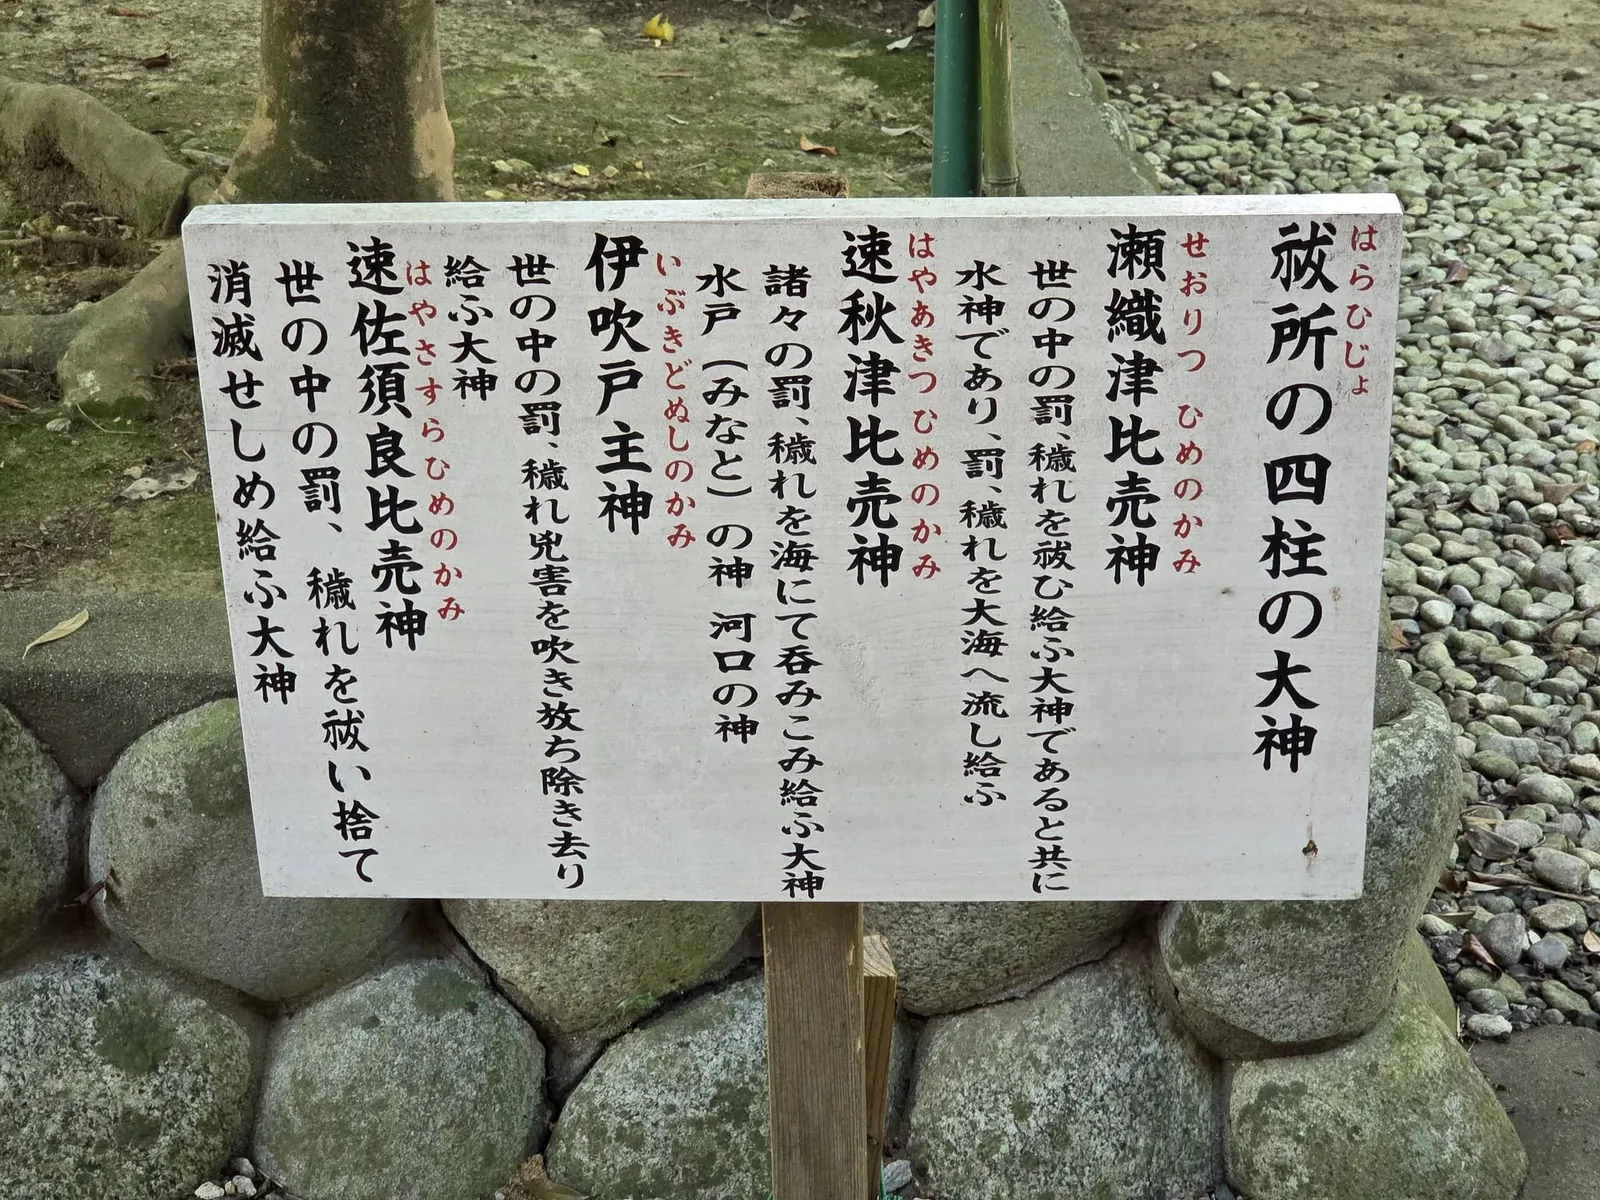 はらひじょ
祓所の四柱の大神
せおりつ ひめのかみ
瀬織津比売神
世の中の罰、穢れを祓ひ給ふ大神であると共に
水神であり、罰、穢れを大海へ流し給ふ
はやあきつ ひめのかみ
速秋津比売神
諸々の罰、穢れを海にて呑みこみ給ふ大神
水戸（みなと）の神 河口の神
いぶきどぬしのかみ
伊吹戸主神
世の中の罰、穢れ兇害を吹き放ち除き去り
給ふ大神
はやさすらひめのかみ
速佐須良比売神
世の中の罰、穢れを祓い捨て
消滅せしめ給ふ大神